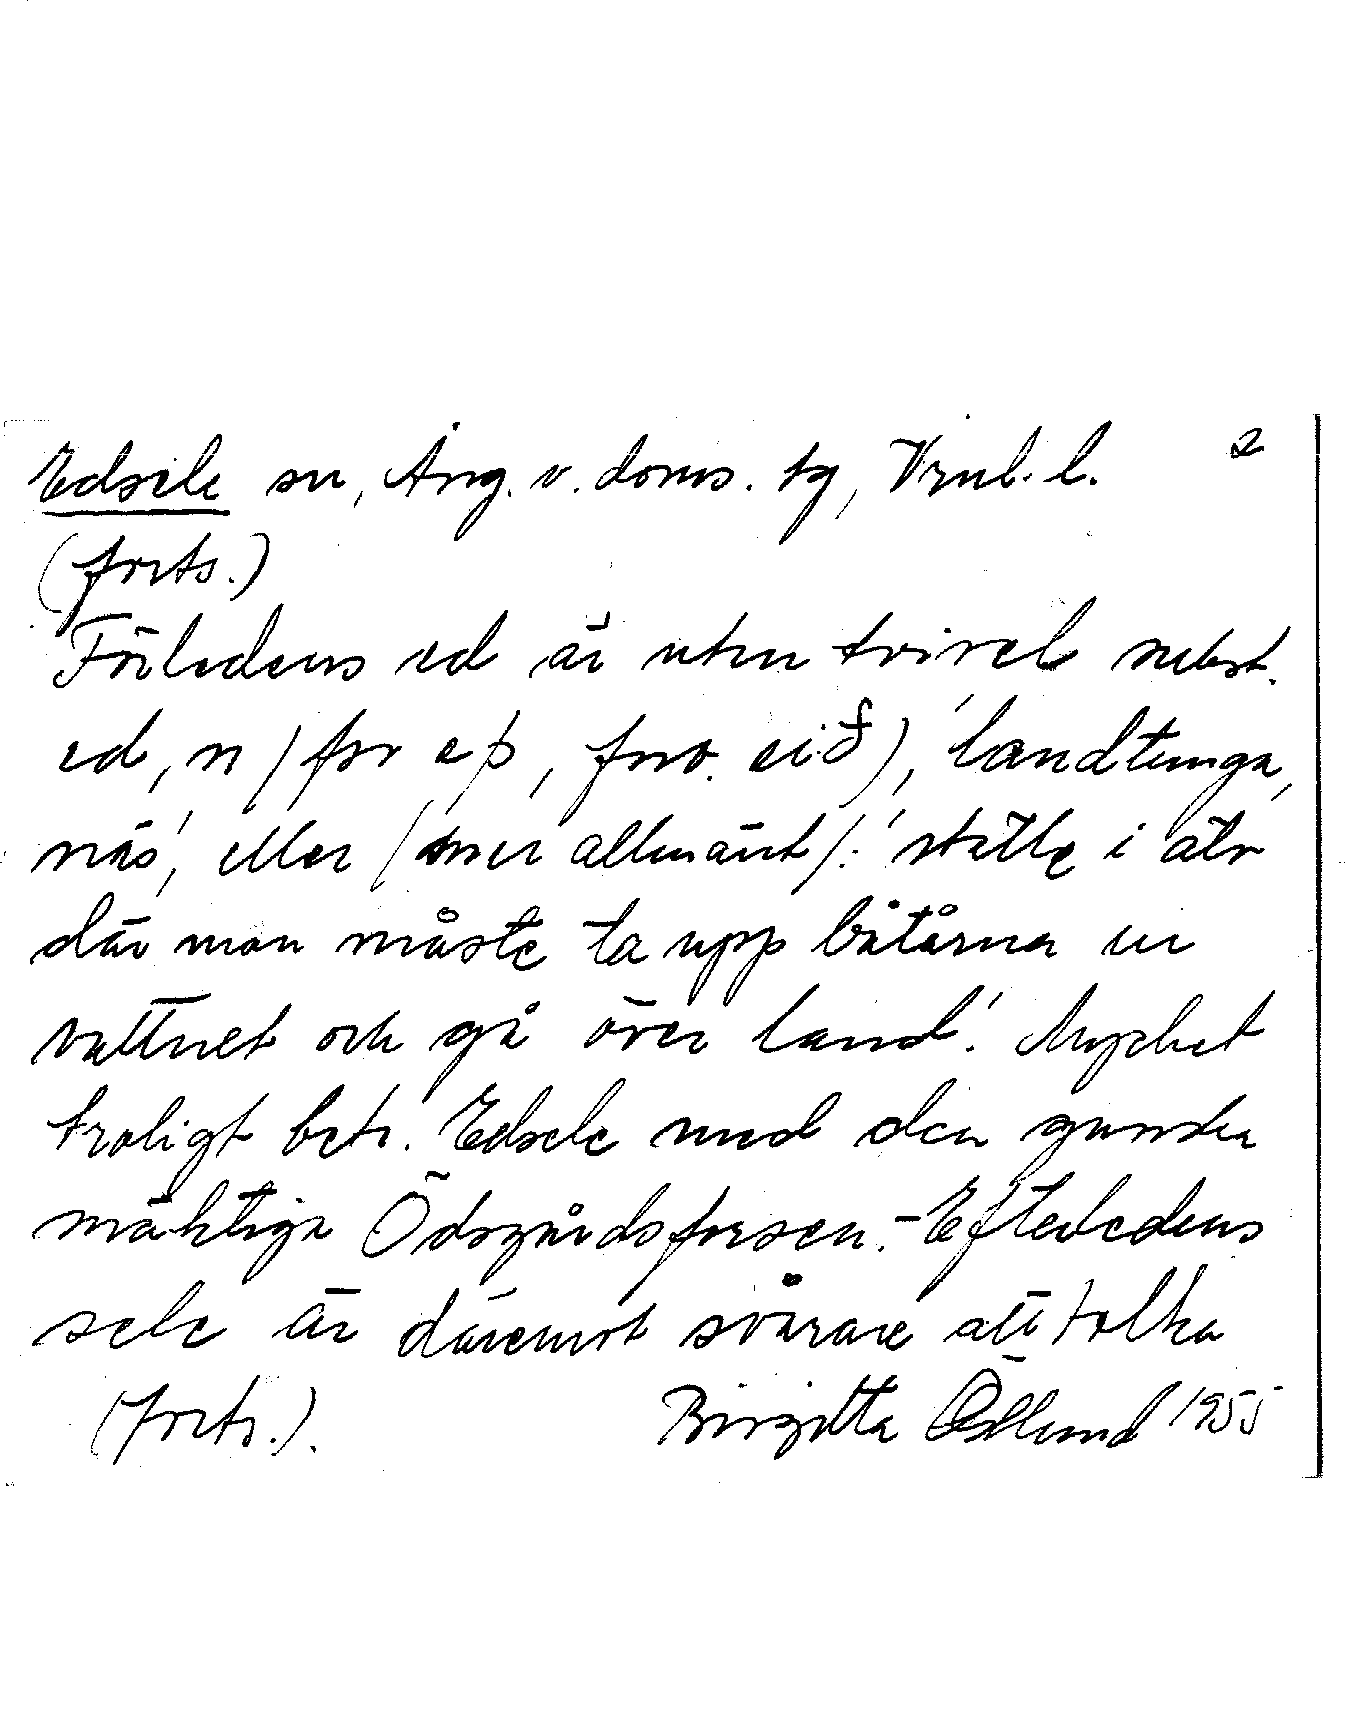 Edsele sn, Ång. v. doms. tg, Vrnl. l. 2
(forts.)
Förledens ed är utan tvivel subst.
ed, n (fsv eþ, fno. eið), 'landtunga,
näs', eller (mer allmänt): 'ställe i älv
där man måste ta upp båtarna ur
vattnet och gå över land'. Mycket
troligt bet. Edsele med den ganska
mäktiga Ödsgårdsforsen. - Efterledens
sele är däremot svårare att tolka
(forts.). Birgitta Ödlund 1955